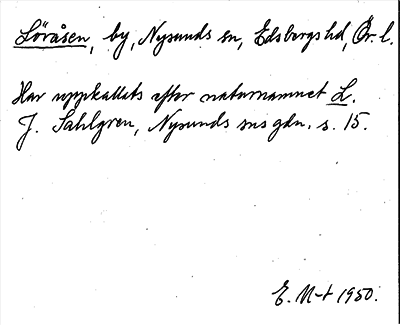 Löråsen, by, Nysunds sn, Edsbergs hd, Ör. l.
Har uppkallats efter naturnamnet L.
J. Sahlgren, Nysunds sns gdn. s. 15.
E. M-t 1950.